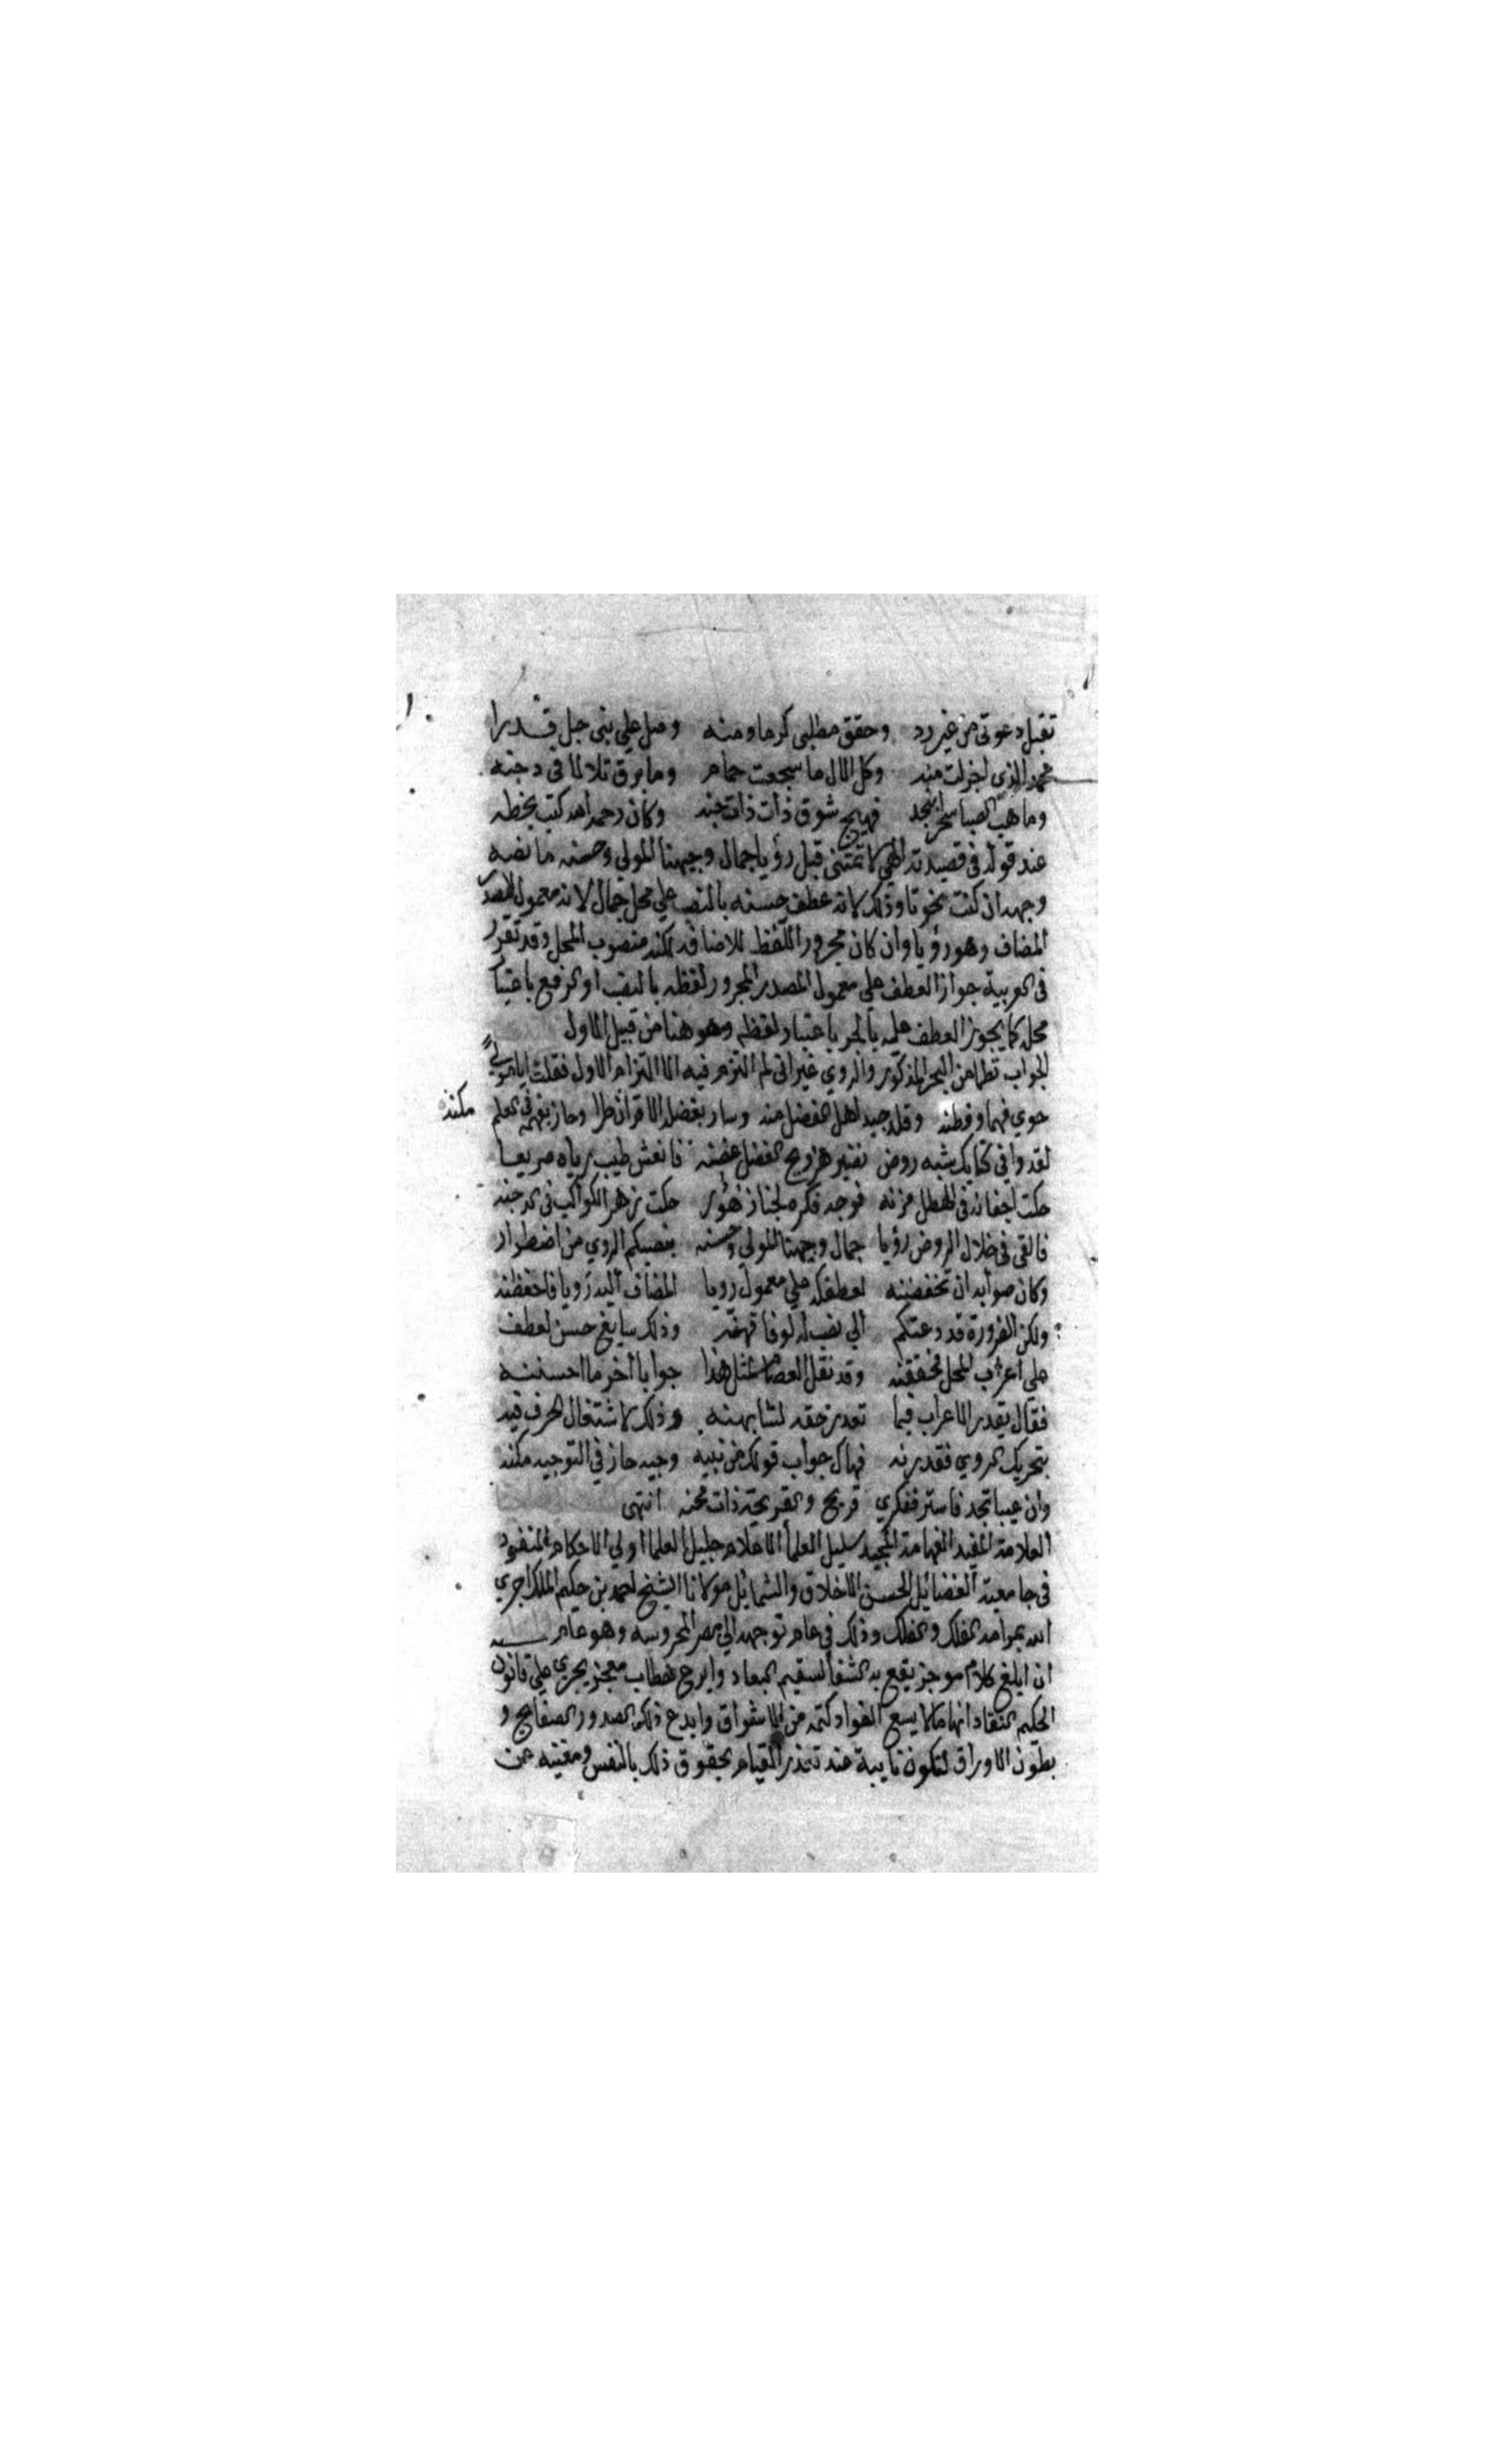 تقبل دعوتي من غير رد وحقق مطلبي كرما ومنه وصل علي نبي جل قدرا
محمد الذي اجزلت منه وكل الال ما سجعت حمام وما برق تلالا في دجنه
وما هب الصبا سحرا بنجد فهيج شوق ذات ذات جنه وكان رحمه الله كتب بخطه
عند قوله في قصيدته الهي لا تمتني قبل رؤيا جمال وجيهنا المولي وحسنه ما نصه
وجهه ان كنت نحويا وذلك لانه عطف حسنه بالنصب علي محل جمال لانه معمول للمصدر
المضاف وهو رؤيا وان كان مجرور اللفظ للاضافه لكنه منصوب المحل وقد تقرر
في العربية جواز العطف علي معمول المصدر المجرور لفظه بالنصب او الرفع باعتبار
محله كما يجوز العطف عليه بالجر باعتبار لفظه وهو هنا من قبيل الاول
الجواب نظما من البحر المذكور والروي غير اني لم التزم فيه الا التزام الاول فقلت ايا مولي
حوي فهما وفطنه وقلد جيد اهل الفضل منه وساد بفضله الاقران طرا وحاز بفهمه في العلم
مكنه
لقد وافي كتابك شبه روض نضير هز ريح الفضل غصنه فانعش طيب رياه صريعا
حكت اجفانه في الهطل مزنه فوجه فكره لجناز زهور حكت زهر الكواكب في الدجنه
فالقي في خلال الروض رؤيا جمال وجيهنا المولي وحسنه بنصبكم الروي من اضطرار
وكان صوابه ان تخفضنه لعطفك علي معمول رويا المضاف اليه رويا فاحفظنه
ولكن الضرورة قد دعتكم الي نصب له لوفا وذلك سايغ حسن لعطف
علي اعراب المحل فحققنه وقد نقل العصام لمثل هذا جوابا اخر ما احسننه
فقال يقدر الاعراب فيما تعذر حقه لتشابهنه وذلك لاشتغال الحرف فيه
بتحريك الروي فقدرنه فهاك جواب قولك من نبيه وجيه حاز في التوجيه مكنه
وان عيبا تجد فاستر ففكري قريح والقريحة ذات محنه انتهى
العلامة المفيد الفهامة المجيد سليل العلما الاعلام جليل العلما اولي الاحكام المنفرد
في جامعية الفضايل الحسن الاخلاق والشمايل مولانا الشيخ احمد بن حكيم الملك اجري
الله بمرامه الفلك والفلك وذلك في عام توجهه الي مصر المحروسه وهو عام سنه
ان ابلغ كلام موجز يقع به الشفا لسقيم البعاد وابرع خطاب معجز يجري علي قانون
الحكيم النقاد انها ما لا يسع الفواد كتمه من الاشواق وايدع ذلك الصدور الصفايح و
بطون الاوراق لتكون نايبة عند تعذر القيام بحقوق ذلك بالنفس ومغنيه عن